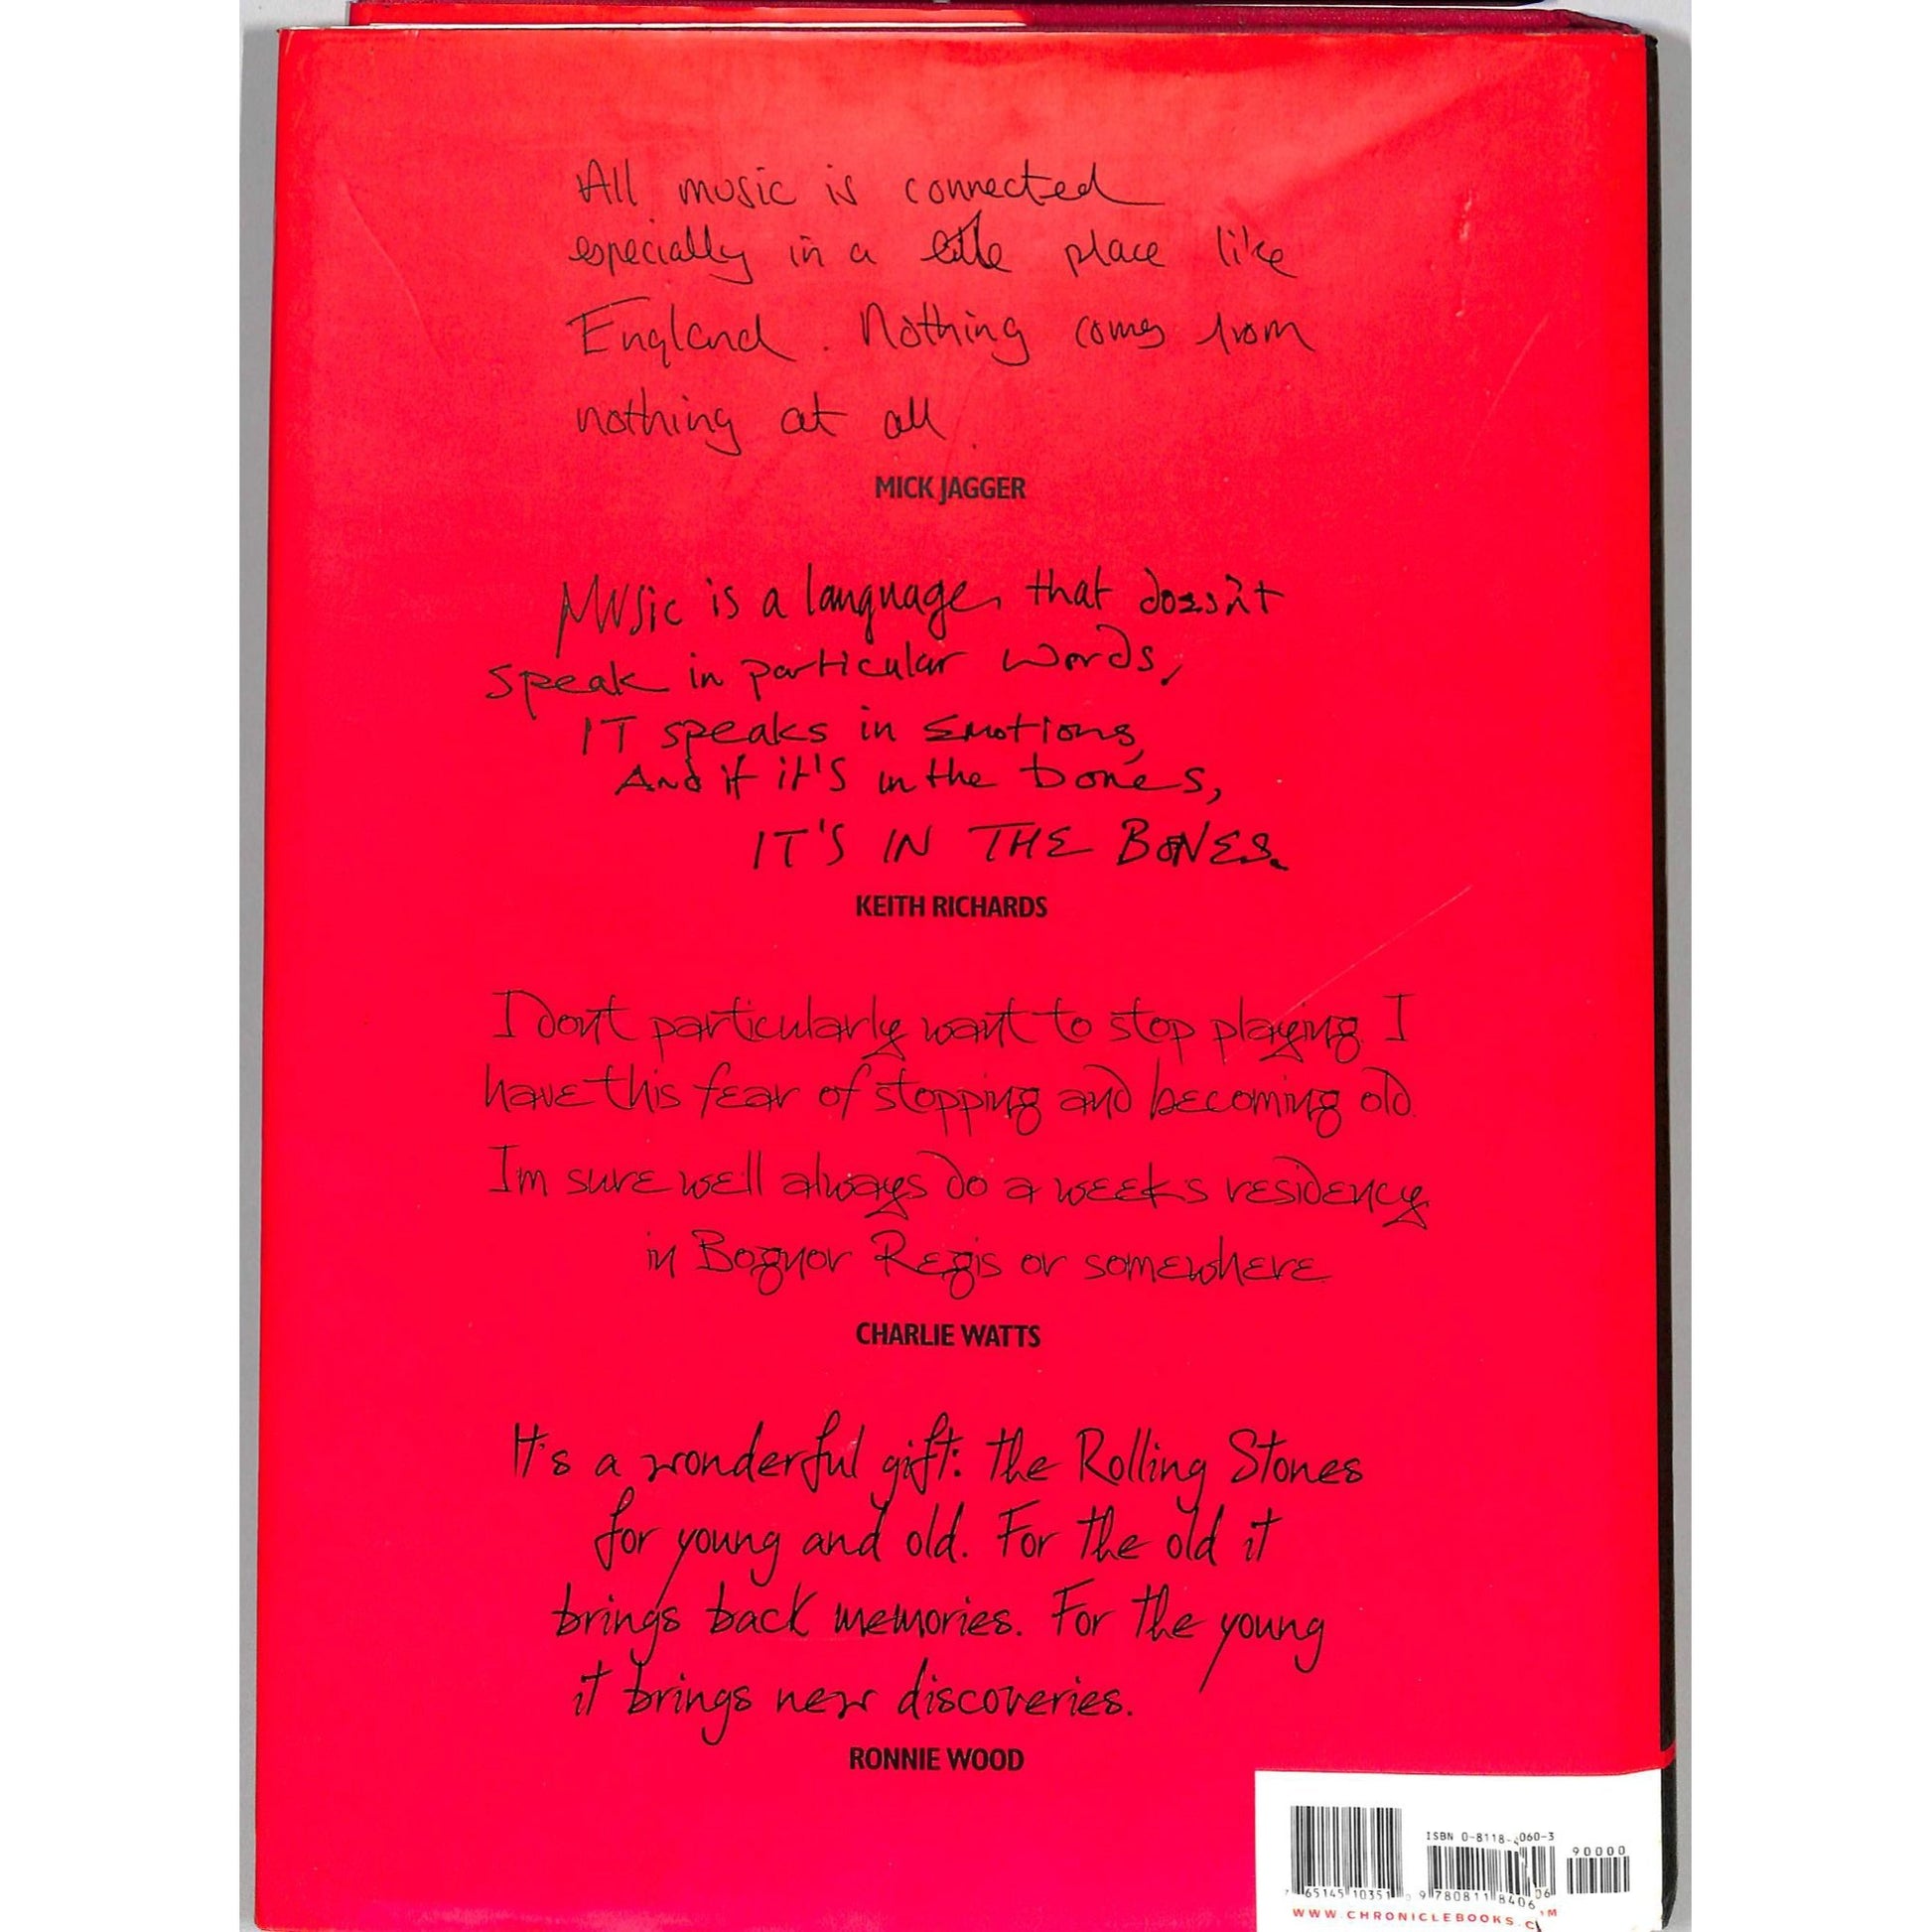 All music is connected
especially in a little place like
England. Nothing comes from
nothing at all.
MICK JAGGER
Music is a language, that doesn't
speak in particular words,
IT speaks in Emotions,
And if it's in the bones,
IT'S IN THE BONES.
KEITH RICHARDS
I dont particularly want to stop playing. I
have this fear of stopping and becoming old.
Im sure well always do a weeks residency
in Bognor Regis or somewhere.
CHARLIE WATTS
It's a wonderful gift: the Rolling Stones
for young and old. For the old it
brings back memories. For the young
it brings new discoveries.
RONNIE WOOD
ISBN 0-8118-4060-3
90000
7 65145 10351 0
9 780811 8406
WWW.CHRONICLEBOOKS.C